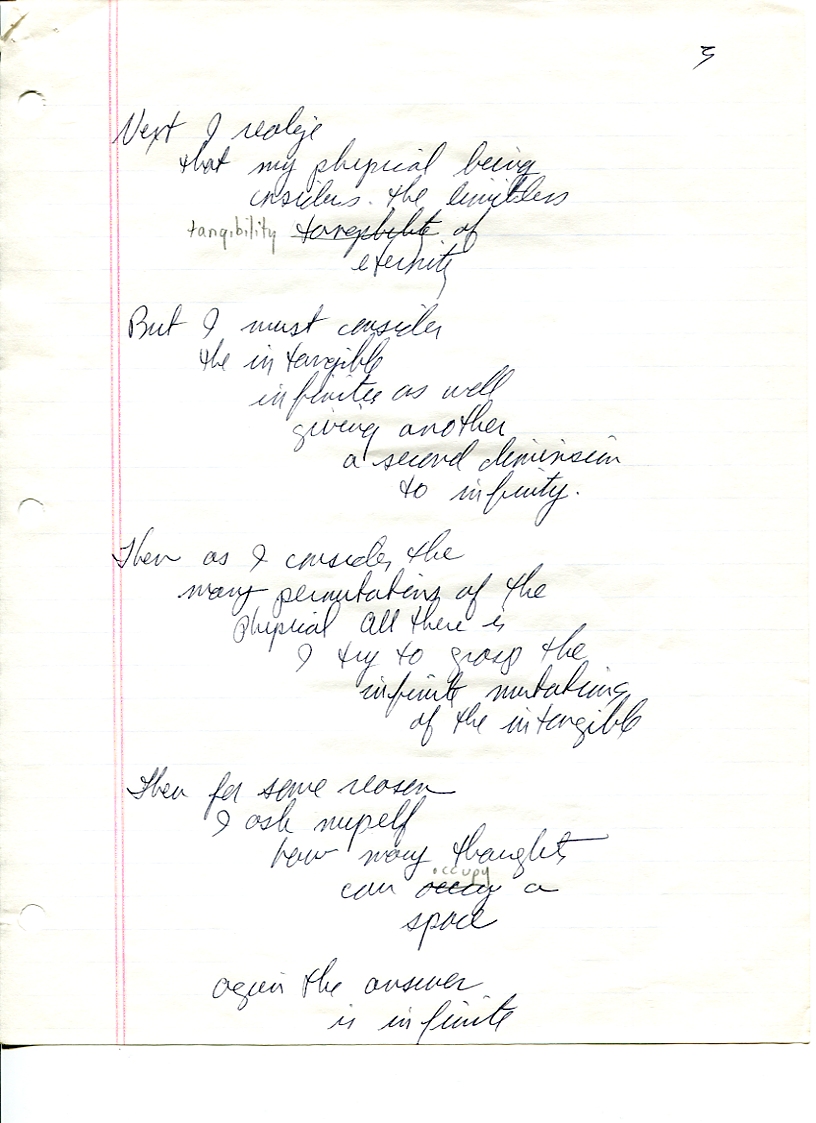 3
Next I realize
that my physical being
considers the limitless
tangibility tangibility of
eternity
But I must consider
the intangible
infinites as well
giving another
a second dimension
to infinity.
Then as I consider the
many permutations of the
physical all there is
I try to grasp the
infinite mutations
of the intangible
Then for some reason
I ask myself
how many thoughts
occupy
can occupy a
space
again the answer
is infinite